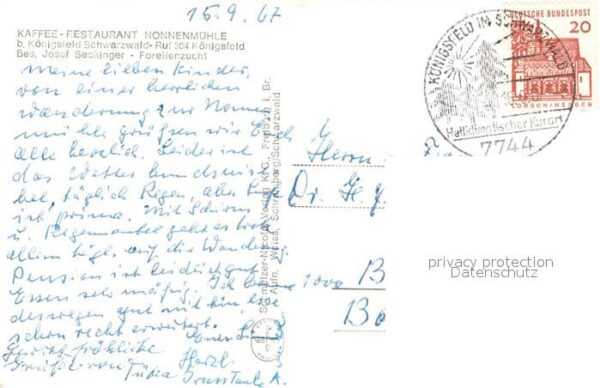 15.9.67
KAFFEE - RESTAURANT NONNENMÜHLE
b. Königsfeld Schwarzwald - Ruf 504 Königsfeld
Bes. Josef Seckinger - Forellenzucht
Meine lieben Kinder,
von einer herrlichen
Wanderung zur Nonnen
mühle grüßen wir Euch
alle herzlich. Leider ist
das Wetter hundsmise
bel, täglich Regen, aber
ist prima. Mit Schirm
u. Regenmantel geht es trotz
allem tägl. auf die Wanderung.
Pension ist leidlich gut
Essen sehr mäßig. Ich
deswegen gut mit
schon recht erwidert.
Grüße von
Herzl.
Tante A.
Schmelzer-Nicolai Verlag KG., Freiburg i. Br.
Aufn. Weiss, Schramberg/Schwarzwald
KÖNIGSFELD IM SCHWARZWALD
Heilklimatischer Kurort
7744
DEUTSCHE BUNDESPOST
20
LORSCH/HESSEN
Herrn
Dr. H. J.
1000 B
Be
privacy protection
Datenschutz